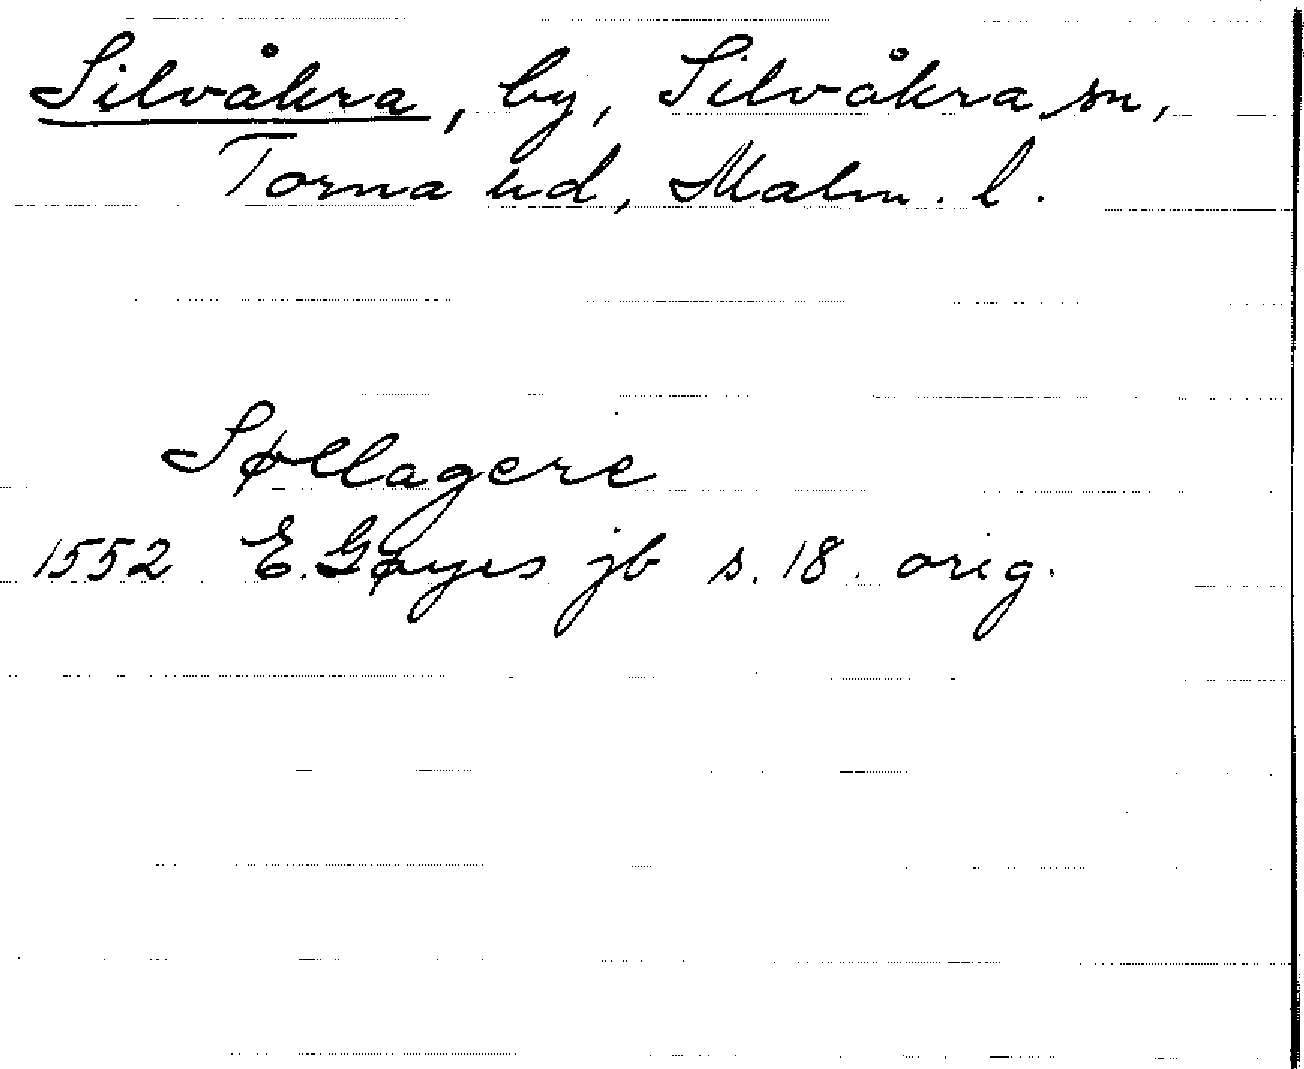 Silvåkra, by, Silvåkra sn,
Torna hd, Malm. l.
Søllagere
1552 E. Gøyes jb s. 18. orig.